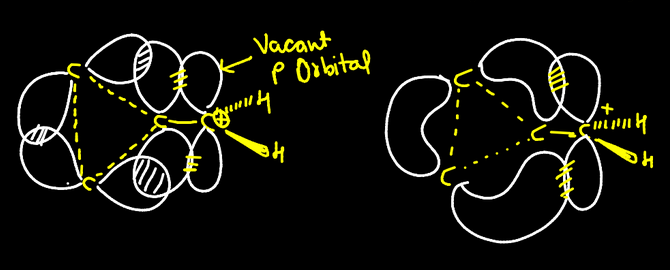 Vacant
P Orbital
C
C
C
C
⊕
H
H
C
C
C
C
+
H
H